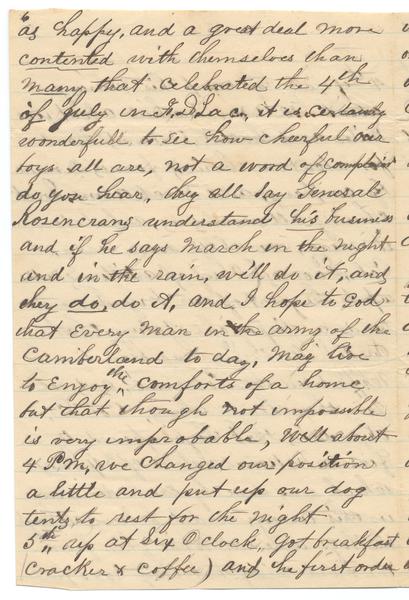 as happy, and a great deal more
contented with themselves than
many, that celebrated the 4th
of July in F. D Lac, it is certainly
wonderfull to see how cheerful our
boys all are, not a word of complaint
do you hear, they all say General
Rosencrans understand his business
and if he says March in the night
and in the rain, we'll do it, and
they do, do it, and I hope to God
that Every Man in the army of the
Camberland to day, May live
to Enjoy the comforts of a home
but that though not impossible
is very improbable, Well about
4 P.M, we changed our position
a little and put up our dog
tents to rest for the night
5th, up at Six O'clock, Got breakfast
(Cracker & Coffee) and the first order